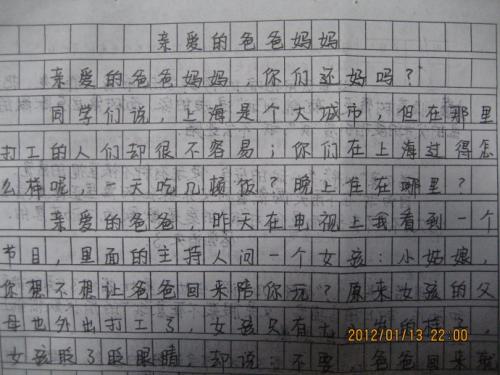 亲爱的爸爸妈妈
亲爱的爸爸妈妈 你们还妈吗？
同学们说，上海是个大城市，但在那里
打工的人们却很不容易；你们在上海过得怎
么样呢，一天吃几顿饭？晚上住在哪里？
亲爱的爸爸，昨天在电视上我看到一个
节目，里面的主持人问一个女孩：小姑娘，
你想不想让爸爸回来陪你玩？原来女孩的父
母也外出打工了，女孩只有
女孩眨了眨眼睛，却说：不要，爸爸回来就
2012/01/13 22:00